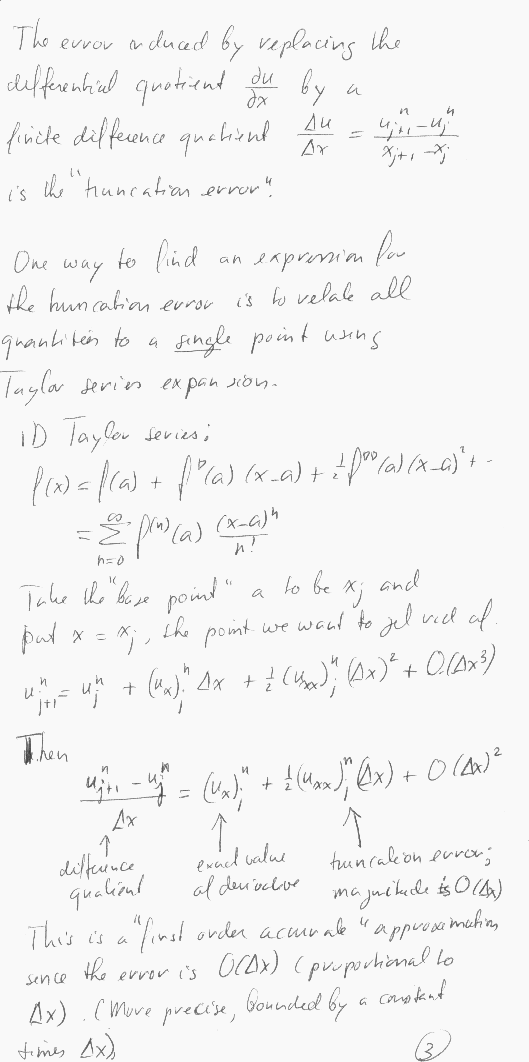 The error induced by replacing the
differential quotient ∂u/∂x by a
finite difference quotient Δu/Δx = (u_{j+1}^n - u_j^n)/(x_{j+1} - x_j)
is the "truncation error".
One way to find an expression for
the truncation error is to relate all
quantities to a single point using
Taylor series expansion.
1D Taylor series:
f(x) = f(a) + f'(a) (x-a) + ½ f''(a) (x-a)² + ..
= Σ_{n=0}^∞ f^(n)(a) (x-a)^n / n!
Take the "base point" a to be x_j and
put x = x_j, the point we want to get rid of.
u_{j+1}^n = u_j^n + (u_x)_j^n Δx + ½ (u_xx)_j^n (Δx)² + O(Δx³)
Then
(u_{j+1}^n - u_j^n)/Δx = (u_x)_j^n + ½ (u_xx)_j^n (Δx) + O(Δx)²
↑ ↑ ↑
difference exact value truncation error;
quotient of derivative magnitude is O(Δx)
This is a "first order accurate" approximation
since the error is O(Δx) (proportional to
Δx). (More precise, bounded by a constant
times Δx)
3